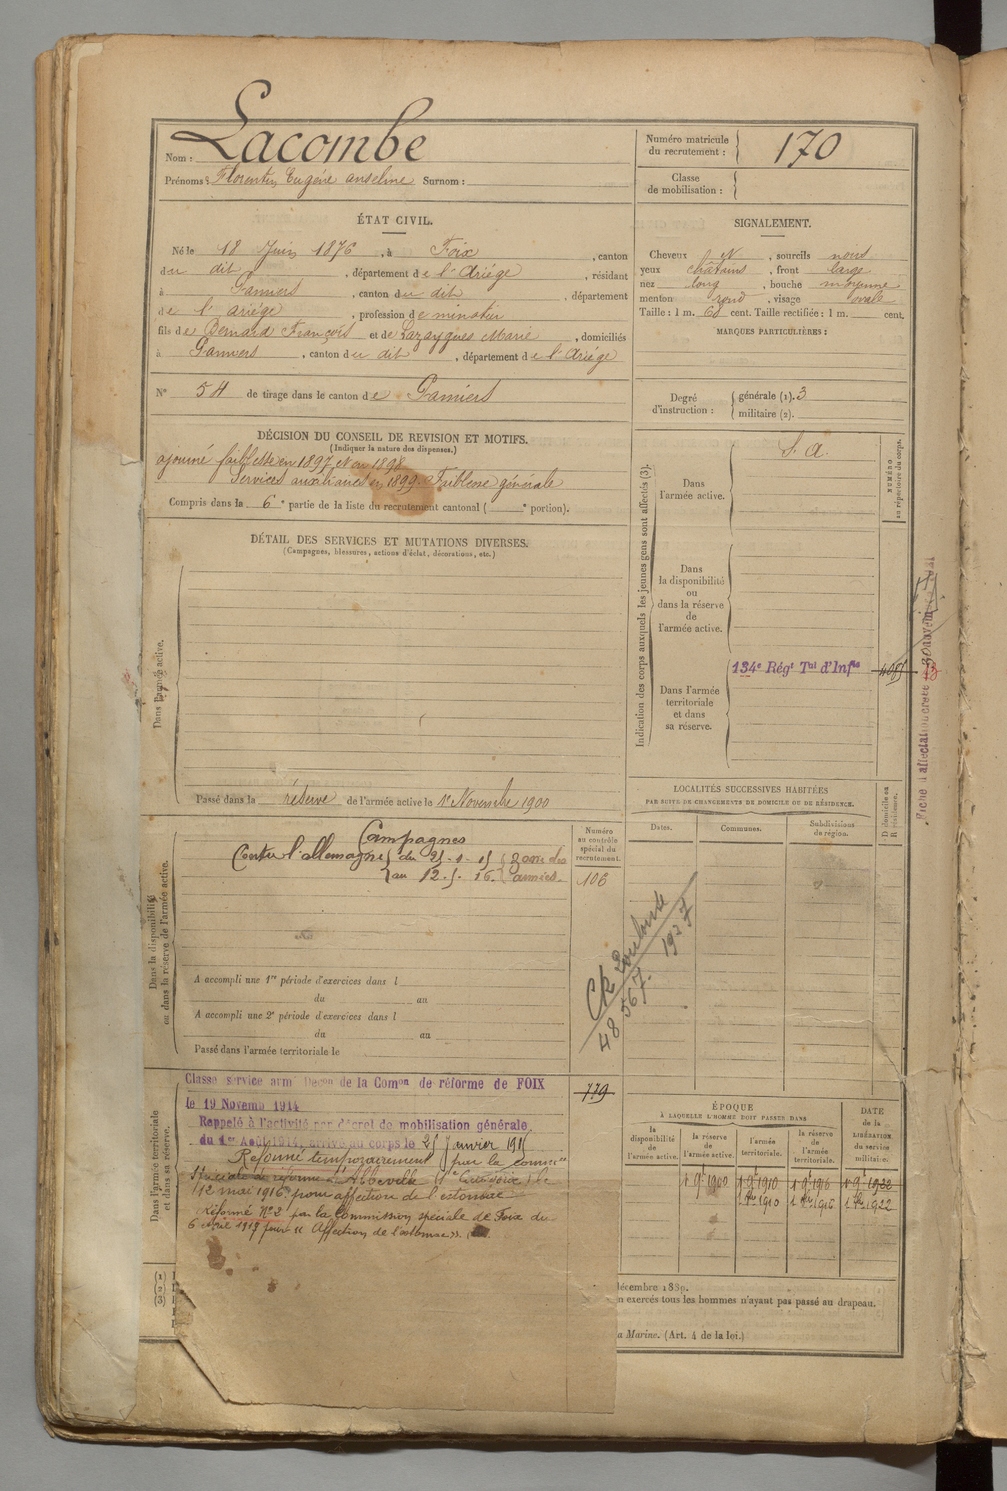 Nom : Lacombe
Prénoms : Florentin Eugène anselme Surnom :
Numéro matricule
du recrutement : 170
Classe
de mobilisation :
ÉTAT CIVIL.
Né le 18 Juin 1876, à Foix, canton
du dit, département de l'Ariége, résidant
à Pamiers, canton du dit, département
de l'ariége, profession de
fils de Bernard François et de Marie, domiciliés
à Pamiers, canton du dit, département de l'Ariége
SIGNALEMENT.
Cheveux N, sourcils noirs
yeux châtains, front large
nez long, bouche moyenne
menton rond, visage ovale
Taille : 1 m. 68 cent. Taille rectifiée : 1 m. cent.
MARQUES PARTICULIÈRES :
N° 54 de tirage dans le canton de Pamiers
Degré
d'instruction :
générale (1). 3
militaire (2).
DÉCISION DU CONSEIL DE REVISION ET MOTIFS.
(Indiquer la nature des dispenses.)
ajourné faiblesse en 1897 et en 1898
Services auxiliaires en 1899. Faiblesse générale
Compris dans la 6e partie de la liste du recrutement cantonal ( e portion).
DÉTAIL DES SERVICES ET MUTATIONS DIVERSES.
(Campagnes, blessures, actions d'éclat, décorations, etc.)
Dans l'armée active.
Passé dans la réserve de l'armée active le 1er Novembre 1900
Indication des corps auxquels les jeunes gens sont affectés (3).
Dans
l'armée active.
S. A.
NUMÉRO
au répertoire du corps.
Dans
la disponibilité
ou
dans la réserve
de
l'armée active.
134e Régt Tal d'Infie
Dans l'armée
territoriale
et dans
sa réserve.
Fiche d'affectation
Dans la disponibilité
ou dans la réserve de l'armée active.
Campagnes
Contre l'allemagne du 25-1-15
au 12-5-16.
armées.
Numéro
au contrôle
spécial du
recrutement.
106
A accompli une 1re période d'exercices dans l
du au
A accompli une 2e période d'exercices dans l
du au
Passé dans l'armée territoriale le
LOCALITÉS SUCCESSIVES HABITÉES
PAR SUITE DE CHANGEMENTS DE DOMICILE OU DE RÉSIDENCE.
Dates.
Communes.
Subdivisions
de région.
D domicile ou
R résidence.
Toulouse
48567. 1927
Dans l'armée territoriale
et dans sa réserve.
Classé service armé Decon de la Comon de réforme de FOIX
le 19 Novemb 1914
Rappelé à l'activité par décret de mobilisation générale
du 1er Août 1914, arrivé au corps le 25 Janvier 1915
Réformé temporairement par la common
Spéciale de réforme d'Abbeville le
12 mai 1916 pour affection de l'estomac
Réformé N° 2 par la Commission spéciale de Foix du
6 1917 pour « Affection de l'estomac ».
779
ÉPOQUE
À LAQUELLE L'HOMME DOIT PASSER DANS
la
disponibilité
de
l'armée active.
la réserve
de
l'armée active.
l'armée
territoriale.
la réserve
de
l'armée
territoriale.
DATE
de la
LIBÉRATION
du service
militaire.
1 9 1900 1 9 1910 1 9 1916 1 9 1922
1 1910 1 1916 1 1922
(1)
(2)
(3)
décembre 1889.
n exercés tous les hommes n'ayant pas passé au drapeau.
a Marine. (Art. 4 de la loi.)